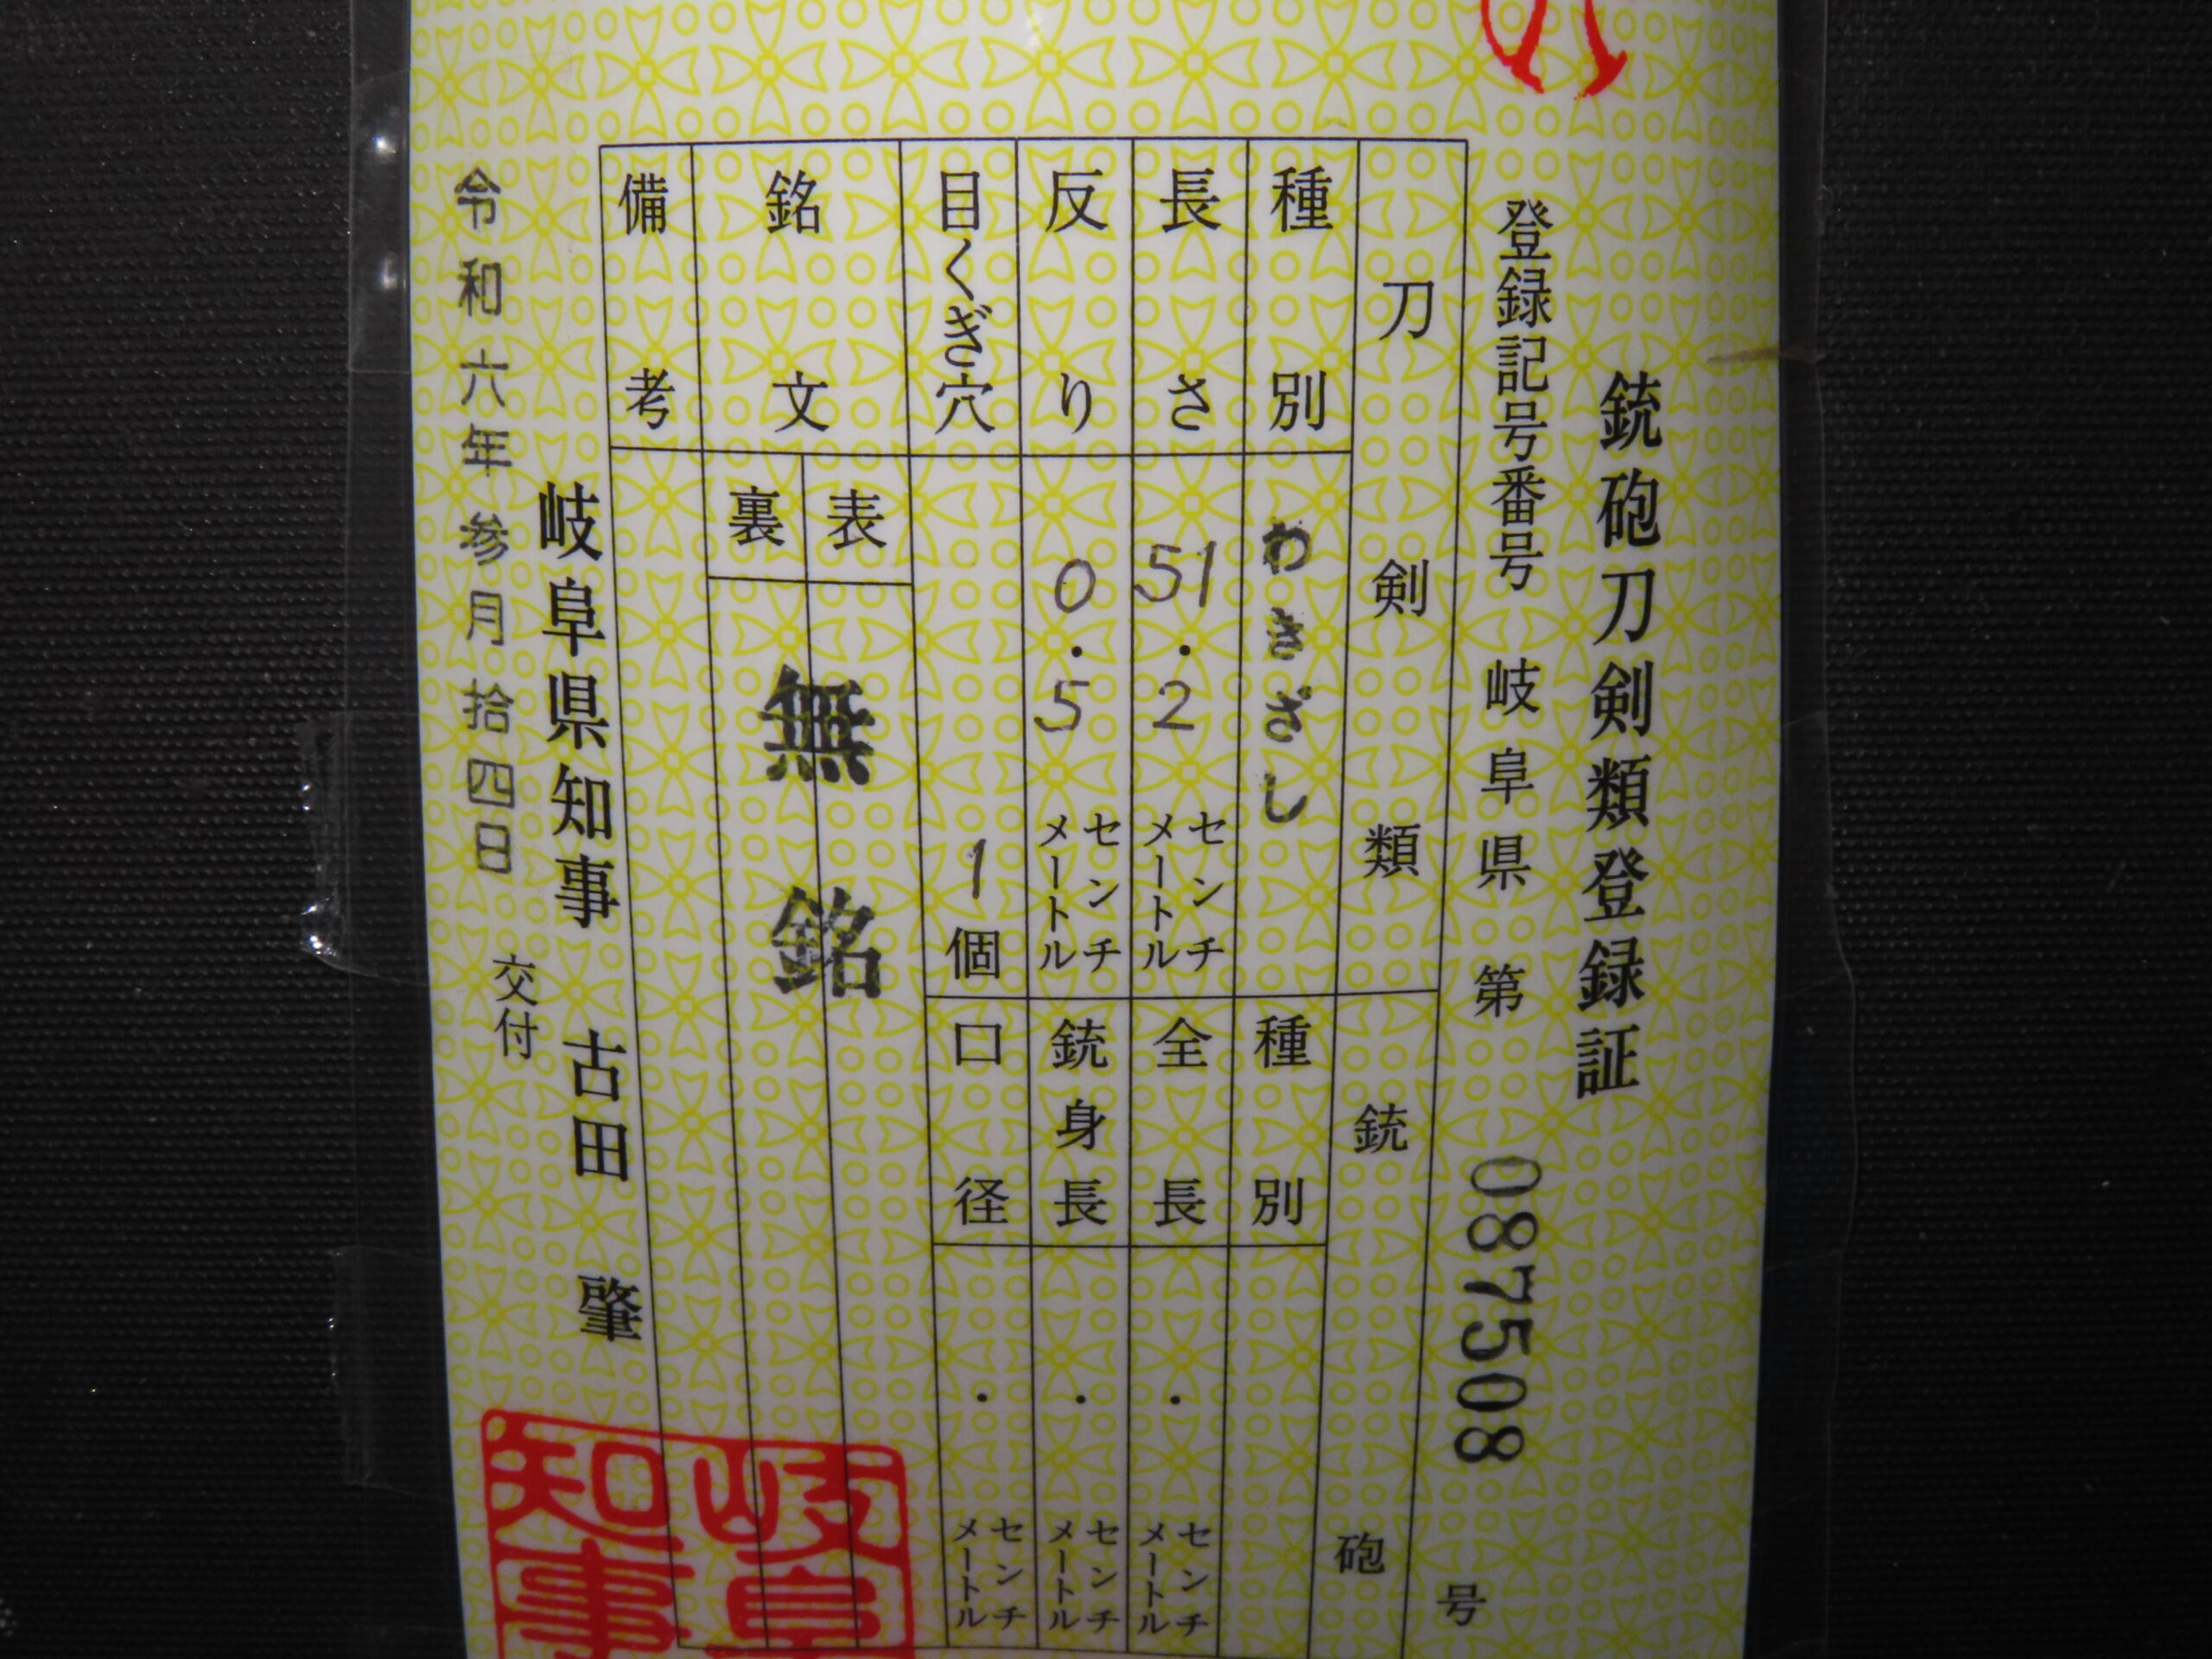 銃砲刀剣類登録証
登録記号番号 岐阜県 第 087508 号
刀剣類
種別 わきざし
長さ 51.2 センチメートル
反り 0.5 センチメートル
目くぎ穴 1個
銘文
表
裏
無銘
備考
銃砲
種別
全長 . センチメートル
銃身長 . センチメートル
口径 . センチメートル
令和六年参月拾四日 交付
岐阜県知事 古田 肇
岐阜
知事